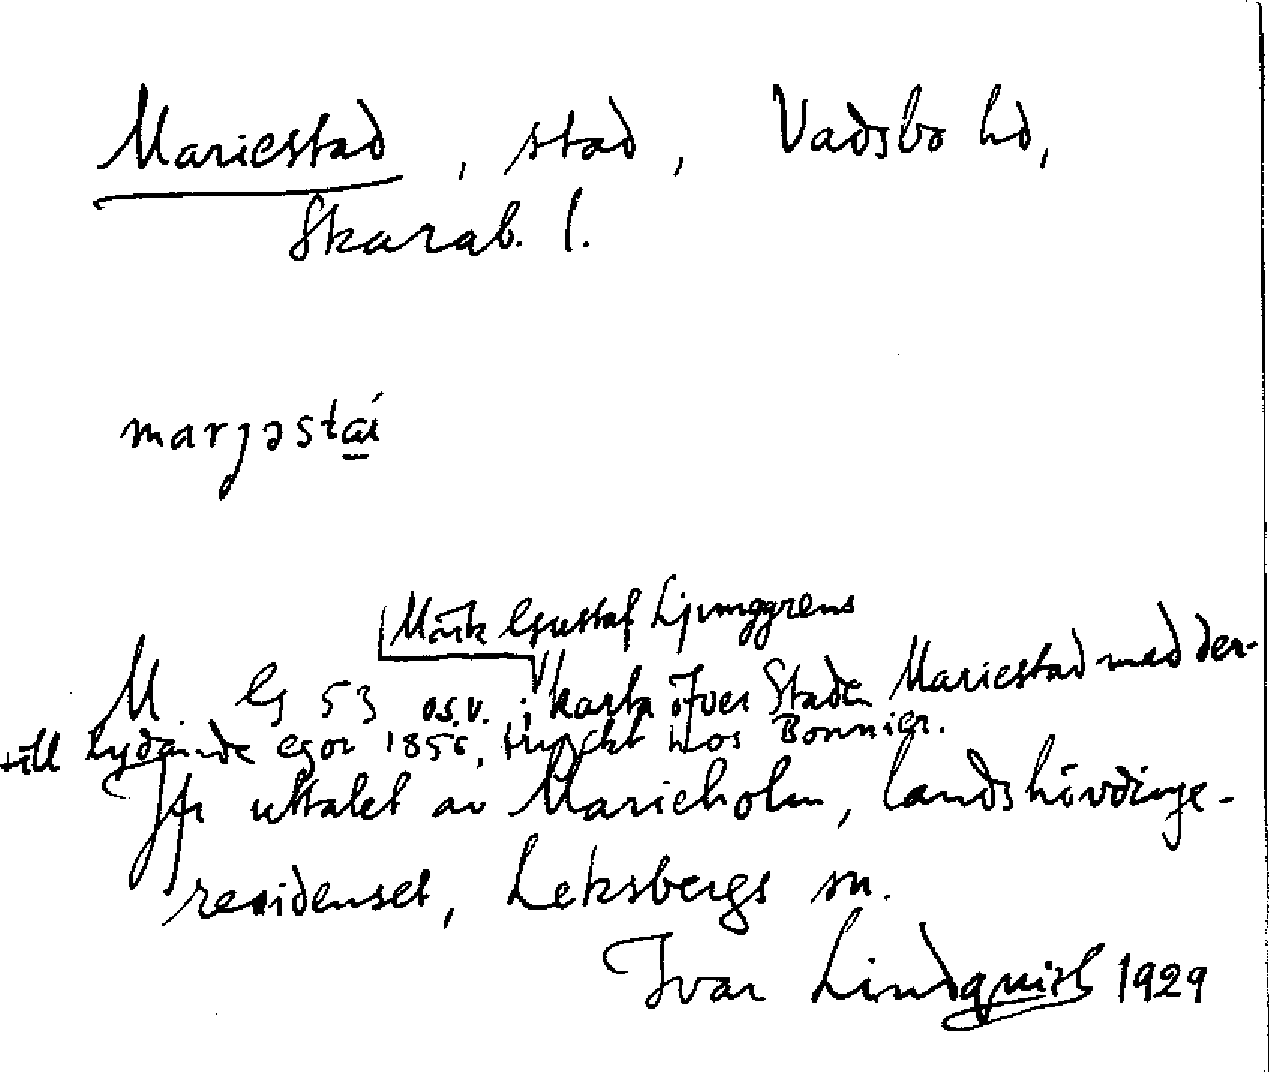 Mariestad, stad, Vadsbo hd,
Skarab. l.
marjəsta
Märk Gustaf Ljunggrens
M. G 53 o.s.v. ; karta öfver Staden Mariestad med der-
till lydande egor 1856, tryckt hos Bonnier.
Jfr uttalet av Marieholm, landshövdinge-
residenset, Leksbergs sn.
Ivar Lindquist 1929